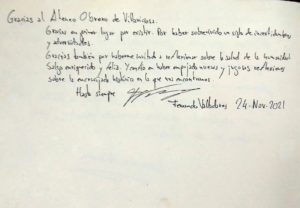 Gracias al Ateneo Obrero de Villaviciosa.
Gracias en primer lugar por existir. Por haber sobrevivido un siglo de incertidumbres
y adversidades.
Gracias también por haberme invitado a reflexionar sobre la salud de la humanidad.
Salgo enriquecido y feliz. Y confío en haber empujado nuevas y jugosas reflexiones
sobre la encrucijada histórica en la que nos encontramos.
Hasta siempre
Fernando Valladares 24-Nov-2021